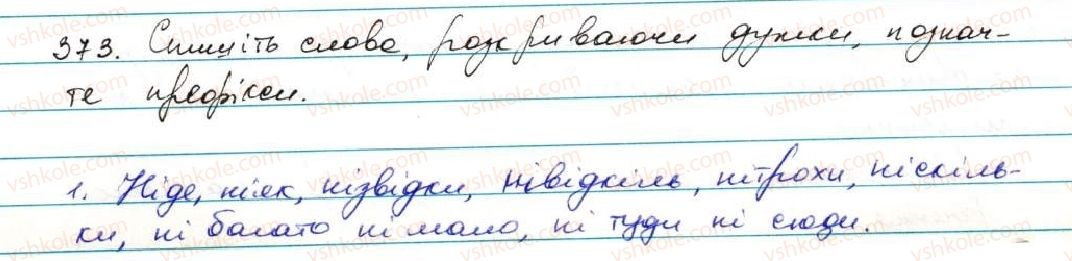 373. Спишіть слова, розкриваючи дужки, познач-
те префікси.
1. Ніде, ніяк, нізвідки, нівідкіль, нітрохи, ніскіль-
ки, ні багато ні мало, ні туди ні сюди.